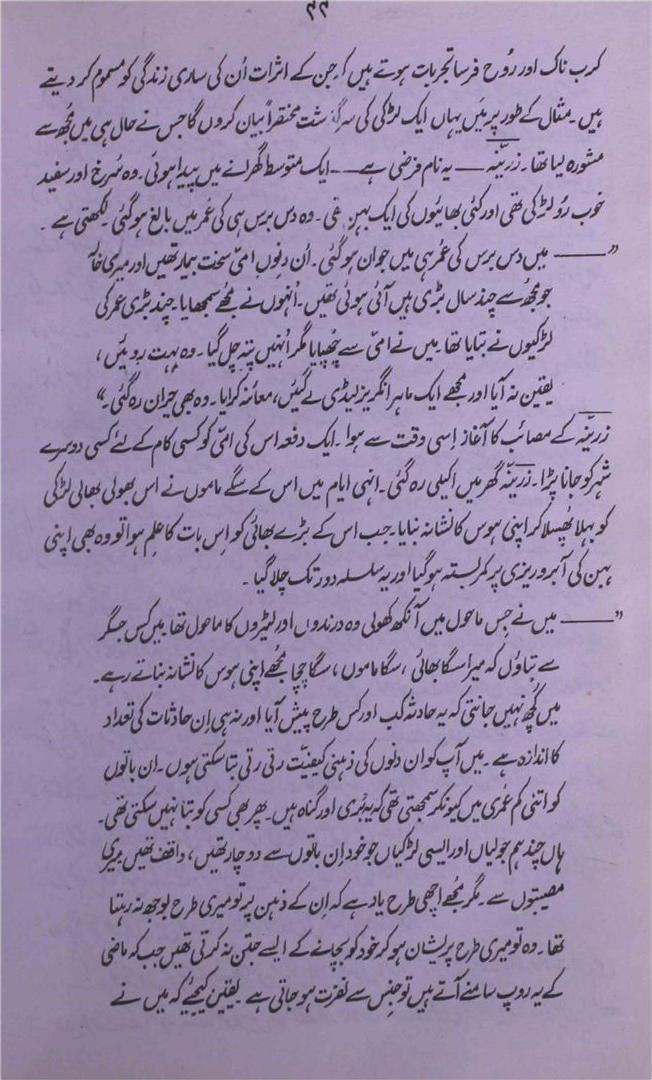 کرب ناک اور رُوح فرسا تجربات ہوتے ہیں کہ جن کے اثرات اُن کی ساری زندگی کو مسموم کر دیتے
ہیں۔ مثال کے طور پر میَں یہاں ایک لڑکی کی سرگذشت مختصراً بیان کروں گا جس نے حال ہی میں مُجھ سے
مشورہ لیا تھا۔ زرینہ —— یہ نام فرضی ہے —— ایک متوسط گھرانے میں پیدا ہوئی۔ وہ سُرخ اور سفید
خوب رُو لڑکی تھی اور کئی بھائیوں کی ایک بہن تھی۔ وہ دس برس ہی کی عمر میں بالغ ہو گئی۔ لکھتی ہے۔
”—— میں دس برس کی عمر ہی میں جوان ہو گئی۔ اُن دِنوں امیّ سخت بیمار تھیں اور میری خالہ
جو مُجھ سے چند سال بڑی ہیں آئی ہوئی تھیں۔ اُنہوں نے مُجھے سمجھایا۔ چند بڑی عمر کی
لڑکیوں نے بتایا تھا۔ میں نے امیّ سے چھپایا مگر اُنہیں پتہ چل گیا۔ وہ بہت روئیں،
یقین نہ آیا اور مجھے ایک ماہر انگریز لیڈی لے گئیں، معائنہ کرایا۔ وہ بھی حیران رہ گئی۔“
زرینہ کے مصائب کا آغاز اِسی وقت سے ہوا۔ ایک دفعہ اس کی امیّ کو کسی کام کے لئے کسی دوسرے
شہر کو جانا پڑا۔ زرینہ گھر میں اکیلی رہ گئی۔ انہی ایام میں اس کے سگے ماموں نے اس بھولی بھالی لڑکی
کو بہلا پھُسلا کر اپنی ہوس کا نشانہ بنایا۔ جب اس کے بڑے بھائی کو اِس بات کا علِم ہوا تو وہ بھی اپنی
بہن کی آبرو ریزی پر کمر بستہ ہو گیا اور یہ سلسلہ دور تک چلا گیا۔
”—— میں نے جِس ماحول میں آنکھ کھولی وہ درندوں اور لٹیروں کا ماحول تھا۔ میں کس جگر
سے بتاؤں کہ میرا سگا بھائی، سگا ماموں، سگا چچا مُجھے اپنی ہوس کا نشانہ بناتے رہے۔
میں کُچھ نہیں جانتی کہ یہ حادثہ کب اور کس طرح پیش آیا اور نہ ہی اِن حادثات کی تعداد
کا اندازہ ہے۔ میں آپ کو ان دنوں کی ذہنی کیفیّت رتی رتی بتا سکتی ہوں۔ ان باتوں
کو اتنی کم عُمری میں کیونکر سمجھتی تھی کہ یہ بُری اور گناہ ہیں۔ پھر بھی کسی کو بتا نہیں سکتی تھی۔
ہاں چند ہم جولیاں اور ایسی لڑکیاں جو خود اِن باتوں سے دوچار تھیں، واقف تھیں میری
مصیبتوں سے۔ مگر مُجھے اچھی طرح یاد ہے کہ اِن کے ذہن پر تو میری طرح بوجھ نہ رہتا
تھا۔ وہ تو میری طرح پریشان ہو کر خود کو بچانے کے ایسے جتن نہ کرتی تھیں جب کہ ماضی
کے یہ روپ سامنے آتے ہیں تو جِنس سے نفرت ہو جاتی ہے۔ یقین کیجئے کہ میں نے